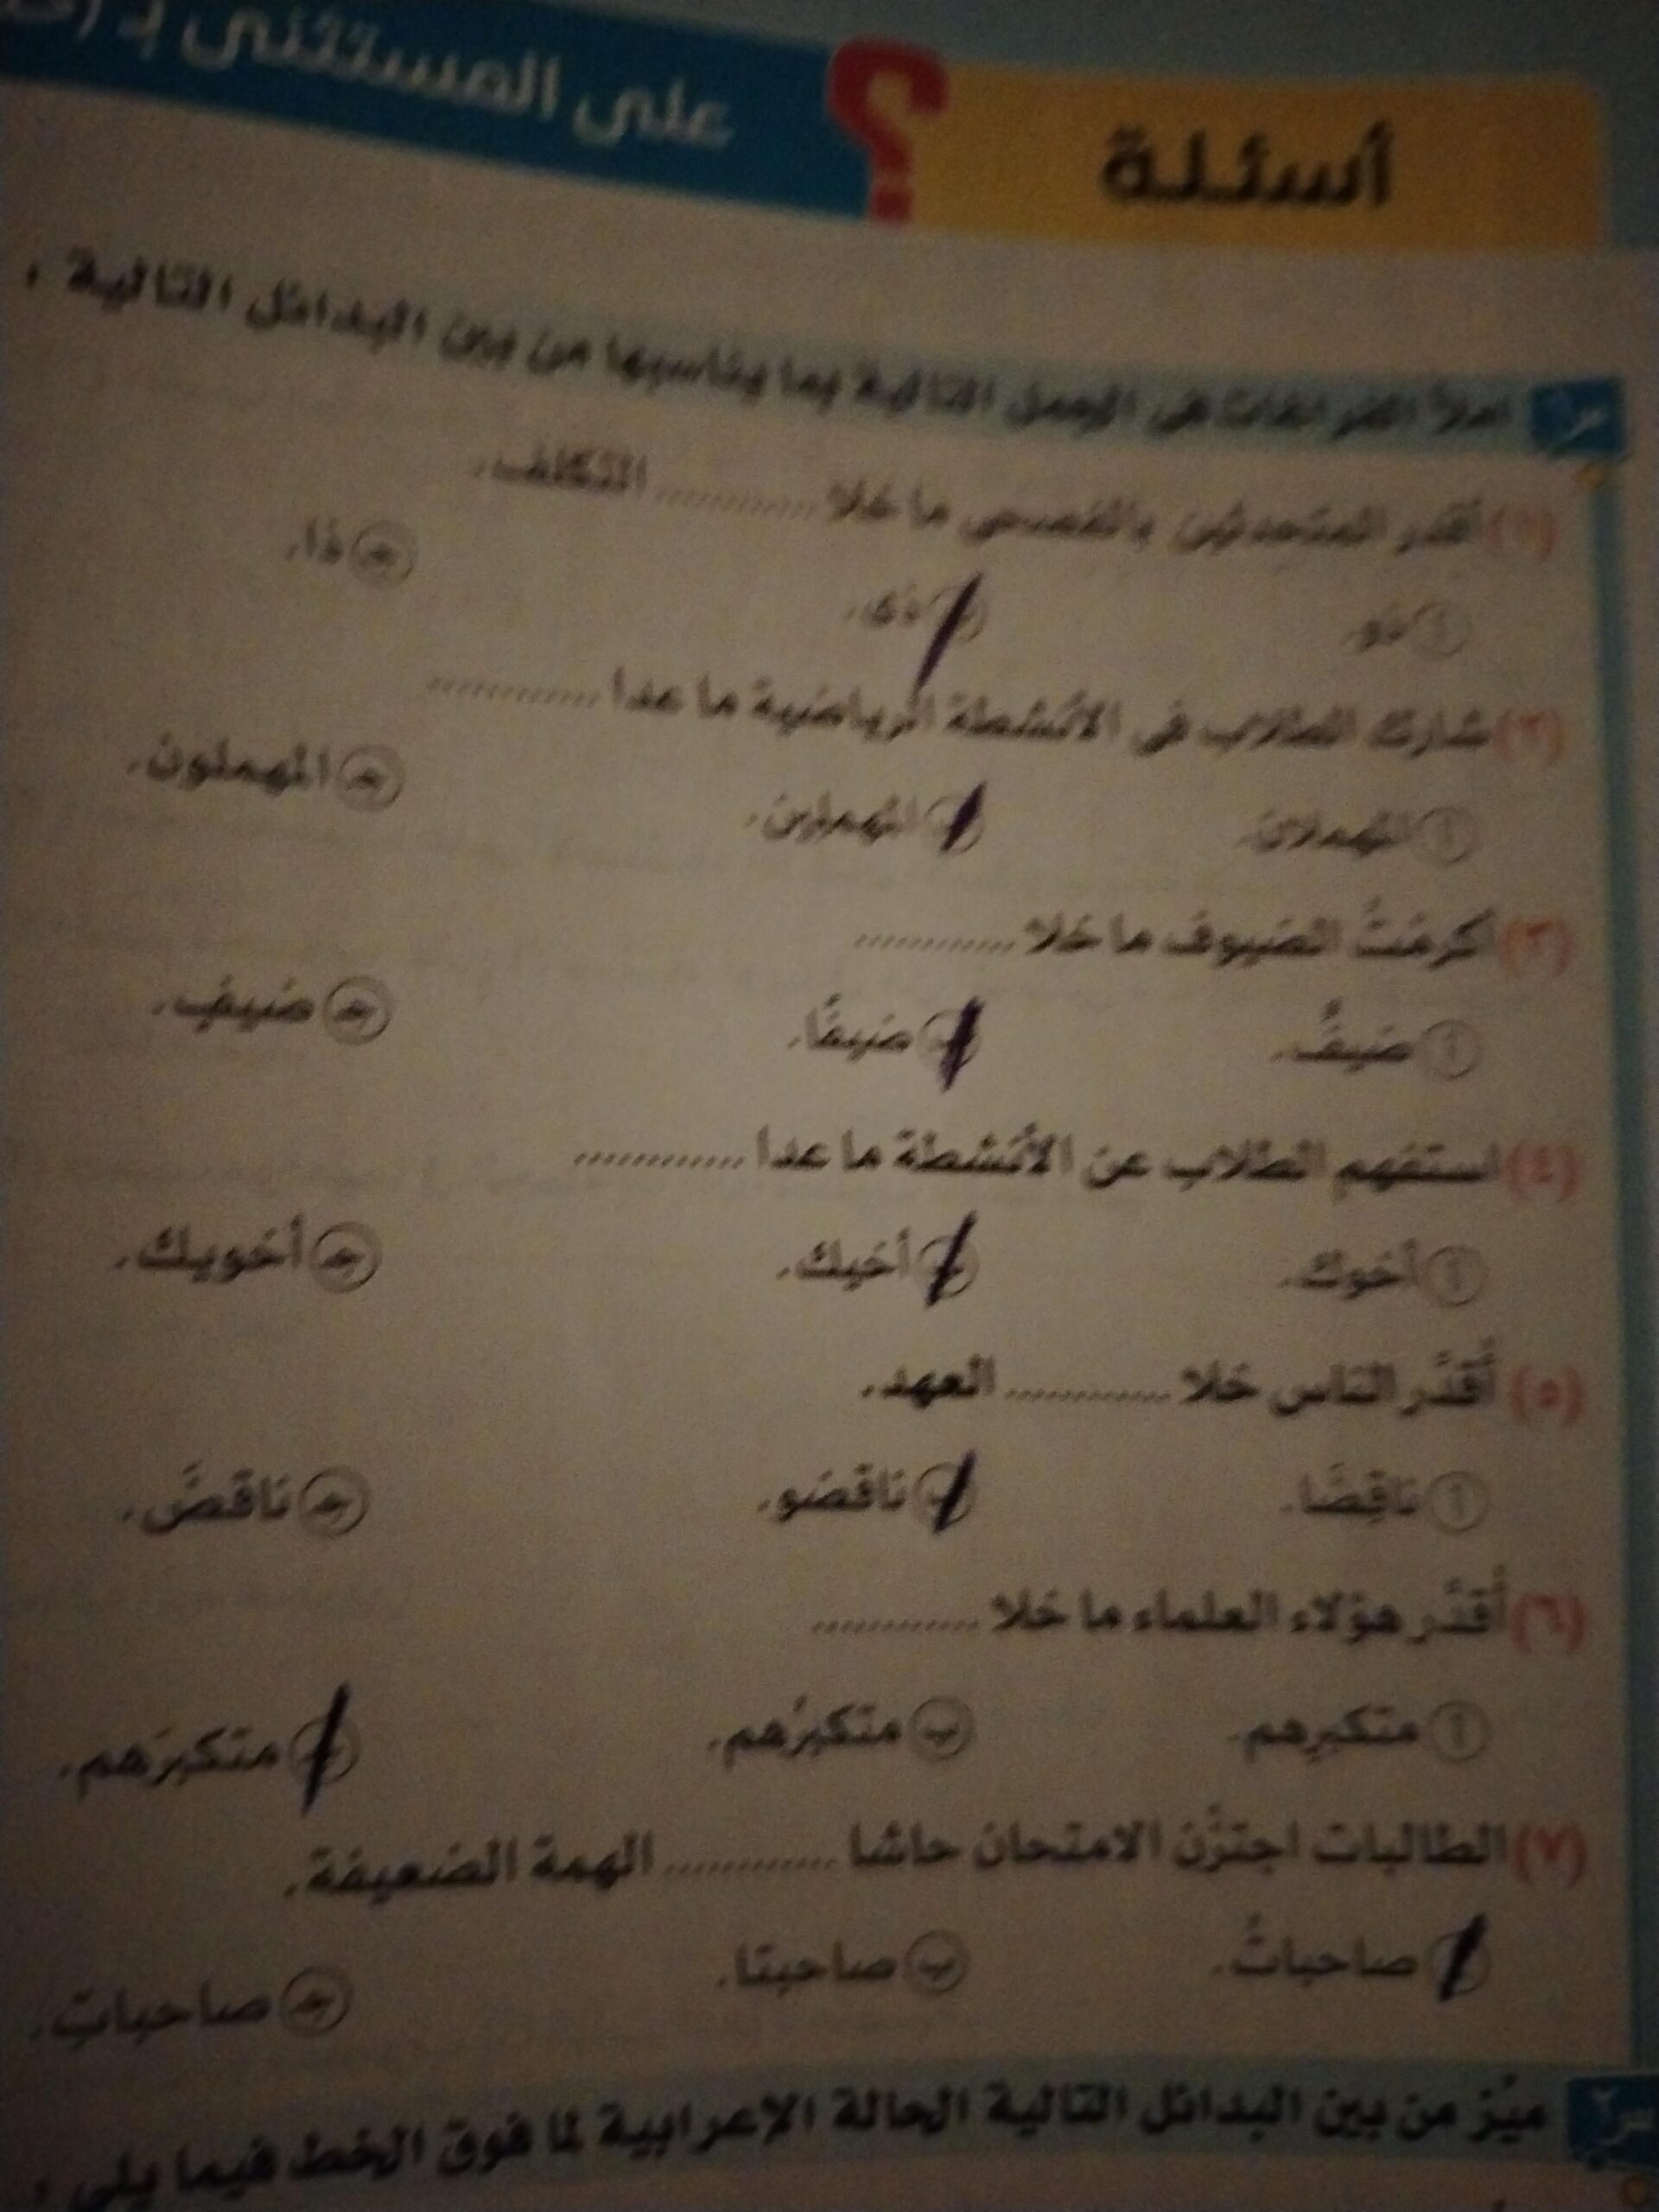 أسئلة ؟ على المستثنى بـ
س١ املأ الفراغات فى الجمل التالية بما يناسبها من بين البدائل التالية :
(١) أقدر المتحدثين بالفصحى ما خلا ............ التكلف.
أ ذو. ب ذى. جـ ذا.
(٢) شارك الطلاب فى الأنشطة الرياضية ما عدا ............
أ المهملان. ب المهملين. جـ المهملون.
(٣) أكرمْتُ الضيوف ما خلا ............
أ ضيفٌ. ب ضيفًا. جـ ضيفٍ.
(٤) استفهم الطلاب عن الأنشطة ما عدا ............
أ أخوك. ب أخيك. جـ أخويك.
(٥) أُقدِّر الناس خلا ............ العهد.
أ ناقِضًا. ب ناقضو. جـ ناقضَ.
(٦) أُقدِّر هؤلاء العلماء ما خلا ............
أ متكبرِهم. ب متكبرُهم. جـ متكبرَهم.
(٧) الطالبات اجتزْن الامتحان حاشا ............ الهمة الضعيفة.
أ صاحباتُ. ب صاحبتا. جـ صاحباتِ.
س٢ ميِّز من بين البدائل التالية الحالة الإعرابية لما فوق الخط فيما يلى :